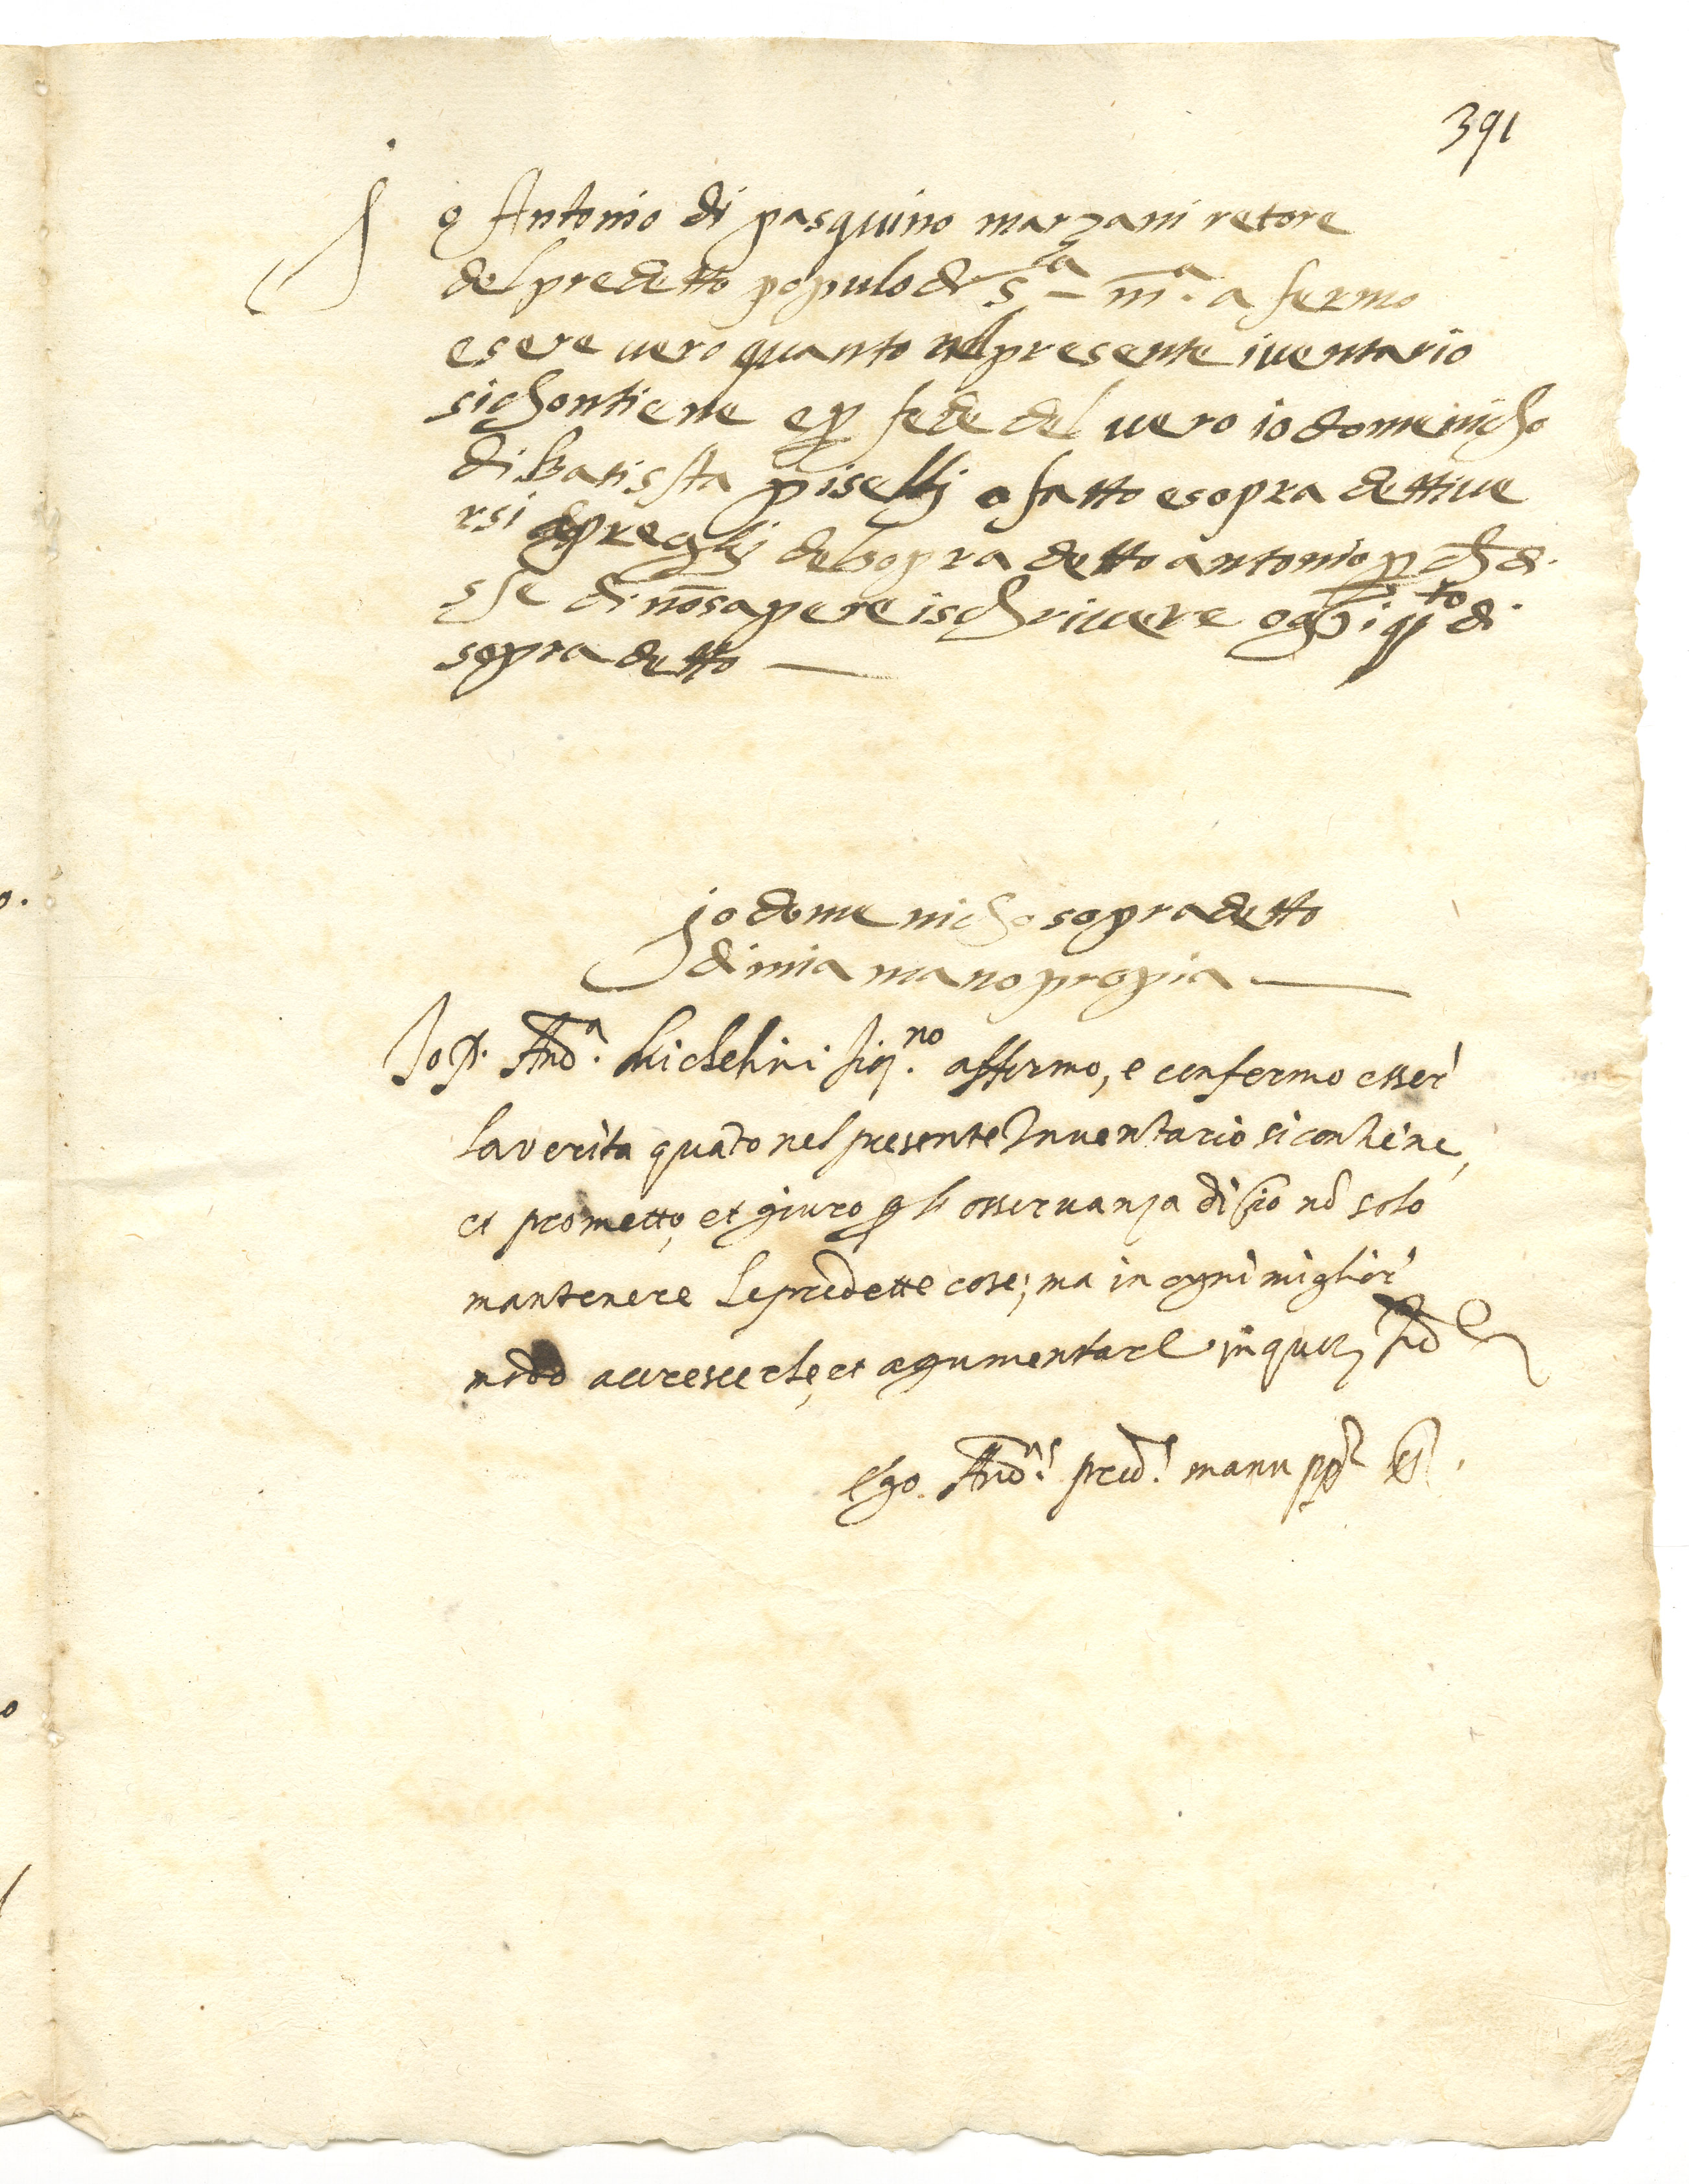 391
Io Antonio di pasquino marzani retore
del predetto populo di S.ta m.a a fermo
esere uero quanto nel presente iuentario
si chontiene e p fede del uero io domenicho
di batissta piselli o fatto e sopra detti ue
rsi a preghi del sopra detto antonio p ch di
sse di nō sapere ischriuere ogi q.to di
sopra detto
io domenicho sopradetto
di mia mano propia
Io P. And.a Michelini affermo, e confermo esser
la verita quāto nel presente Inuentario si contiene,
et prometto, et giuro p osseruanza di cio nō solo
mantenere le predette cose; ma in ogni miglior
modo accrescerle, et agumentarle in
Ego And.as pred.s manu pp.a